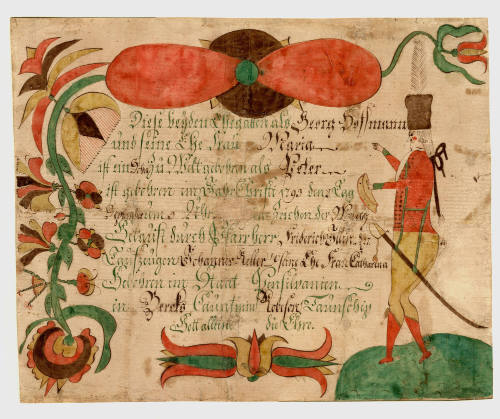 Diese beyden Ehegatten als Georg Hoffmann
und seine Ehe Frau Maria
ist ein Sohn zu Welt gebohren als Peter
ist gebohren im Jahr Christi 1793 den Tag
um Uhr im Zeichen der
Getauft durch Pfarrherr Friderich
Tauffzeugen Johannes Keller Seine Ehe Frau Catharina
Gebohren im Staat Pensilvanien
in Berks Caunti in Taunschip
Gott allein die Ehre.